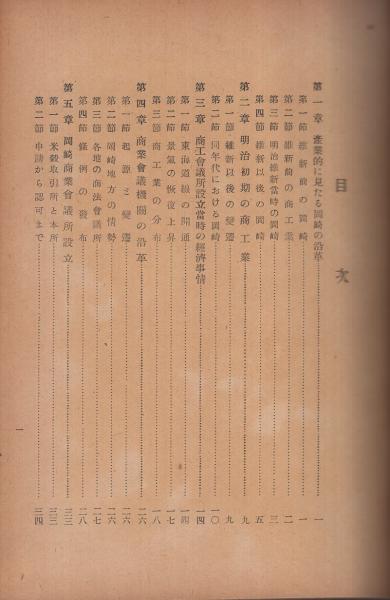 目次
第一章 產業的に見たる岡崎の沿革 一
第一節 維新前の岡崎 一
第二節 維新前の商工業 二
第三節 明治維新當時の岡崎 三
第四節 維新以後の岡崎 五
第二章 明治初期の商工業 九
第一節 維新以後の變遷 九
第二節 同年代における岡崎 一〇
第三章 商工會議所設立當時の經濟事情 一四
第一節 東海道線の開通 一四
第二節 景氣の恢復上昇 一七
第三節 商工業の分布 一八
第四章 商業會議機關の沿革 二六
第一節 起源と變遷 二六
第二節 岡崎地方の情勢 二六
第三節 各地の商法會議所 二七
第四節 條例の發布 二八
第五章 岡崎商業會議所設立 三三
第一節 米穀取引所と本所 三三
第二節 申請から認可まで 三四
一